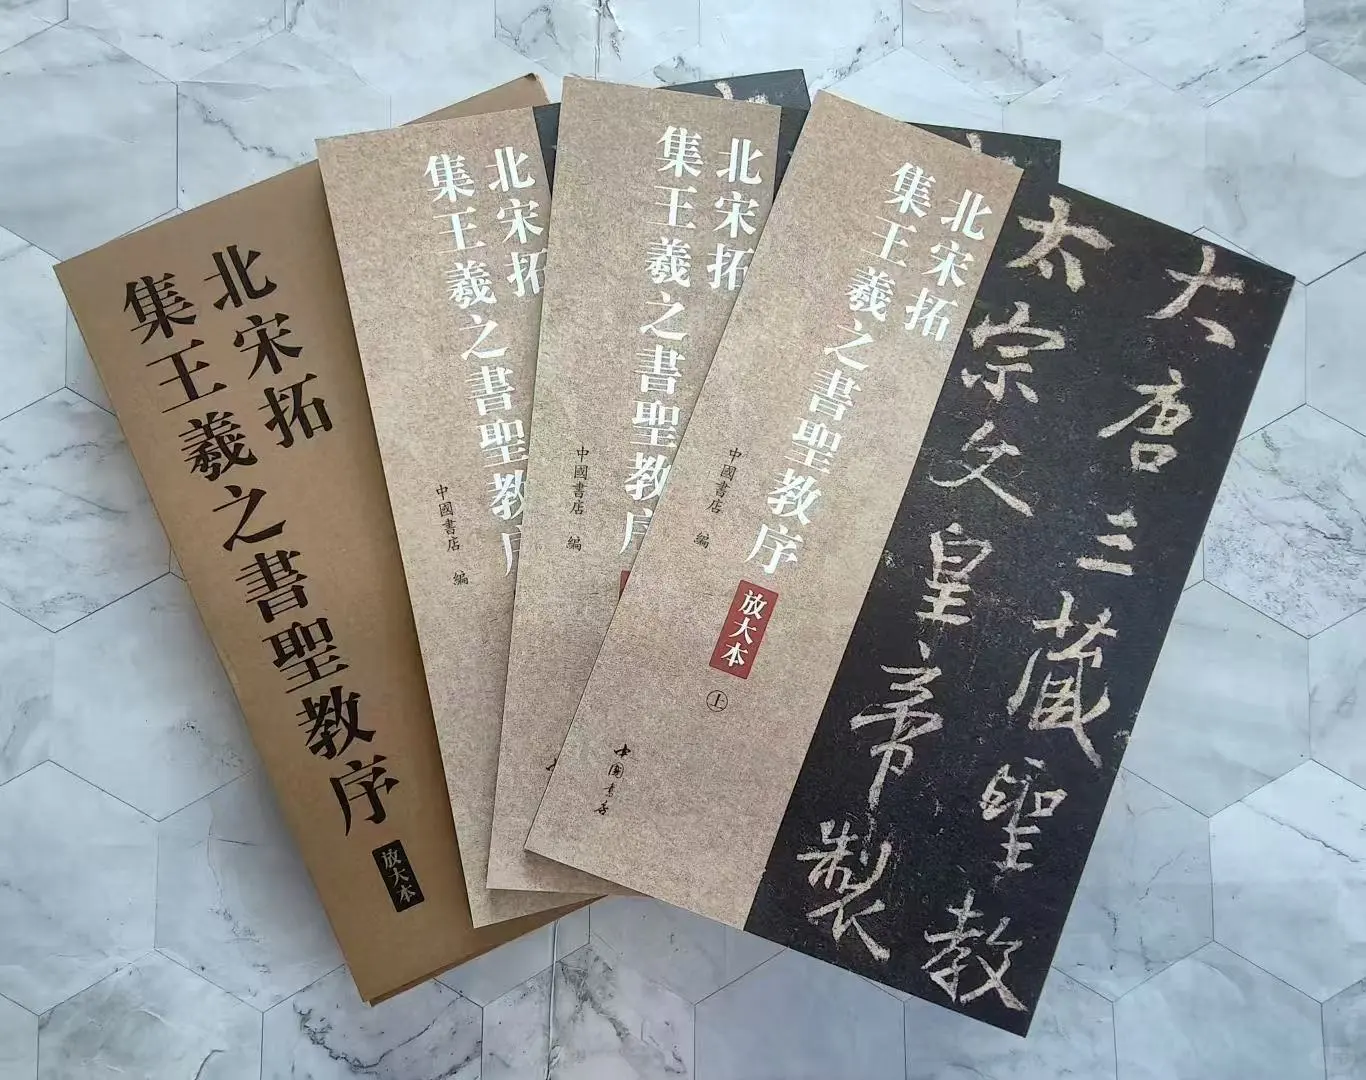 北宋拓
集王羲之書聖教序
放大本
北宋拓
集王羲之書聖教序
中國書店 編
北宋拓
集王羲之書聖教序
中國書店 編
北宋拓
集王羲之書聖教序
放大本
上
中國書店 編
中国书店
大唐三藏聖教
太宗文皇帝製